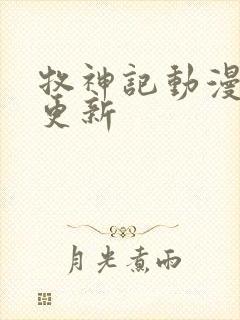 牧神記動漫
更新
月光煮雨